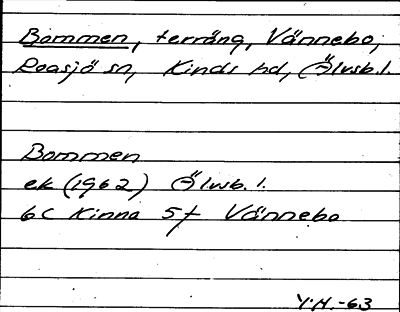 Bommen, terräng, Vännebo,
Roasjö sn, Kinds hd, Älvsb. l.
Bommen
ek (1962) Älvsb. l.
6C Kinna 5f Vännebo
Y.H.-63